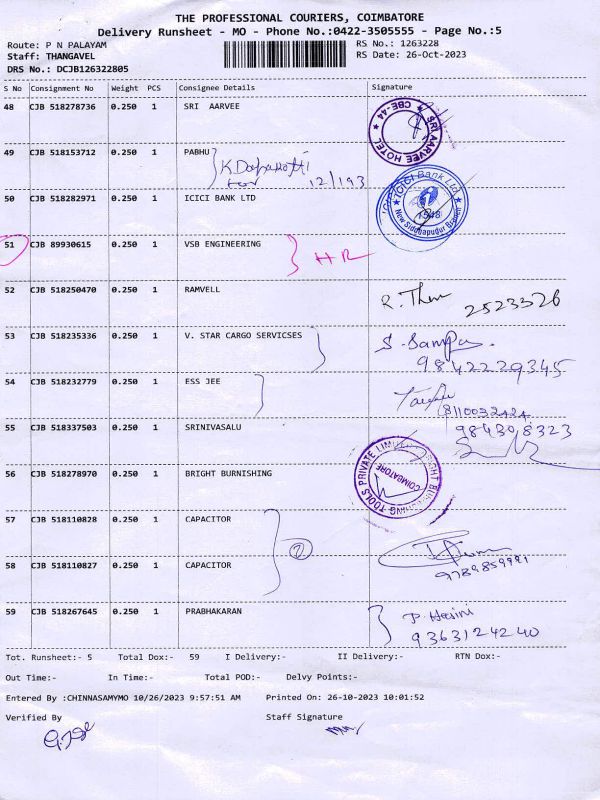 THE PROFESSIONAL COURIERS, COIMBATORE
Delivery Runsheet - MO - Phone No.:0422-3505555 - Page No.:5
Route: P N PALAYAM
RS No.: 1263228
Staff: THANGAVEL
RS Date: 26-Oct-2023
DRS No.: DCJB126322805
S No Consignment No Weight PCS Consignee Details Signature
48 CJB 518278736 0.250 1 SRI AARVEE
SRI AARVEE HOTEL
CBE-44
49 CJB 518153712 0.250 1 PABHU
12/193
50 CJB 518282971 0.250 1 ICICI BANK LTD
ICICI Bank Ltd
1548
New Siddhapudur Branch
51 CJB 89930615 0.250 1 VSB ENGINEERING
HR
52 CJB 518250470 0.250 1 RAMVELL
2523326
53 CJB 518235336 0.250 1 V. STAR CARGO SERVICSES
9842229345
54 CJB 518232779 0.250 1 ESS JEE
8110032424
55 CJB 518337503 0.250 1 SRINIVASALU
984308323
56 CJB 518278970 0.250 1 BRIGHT BURNISHING
BRIGHT BURNISHING TOOLS PRIVATE LIMITED
COIMBATORE
57 CJB 518110828 0.250 1 CAPACITOR
2
58 CJB 518110827 0.250 1 CAPACITOR
9789859991
59 CJB 518267645 0.250 1 PRABHAKARAN
P. Hasini
9363124240
Tot. Runsheet:- 5 Total Dox:- 59 I Delivery:- II Delivery:- RTN Dox:-
Out Time:- In Time:- Total POD:- Delvy Points:-
Entered By :CHINNASAMYMO 10/26/2023 9:57:51 AM Printed On: 26-10-2023 10:01:52
Verified By Staff Signature